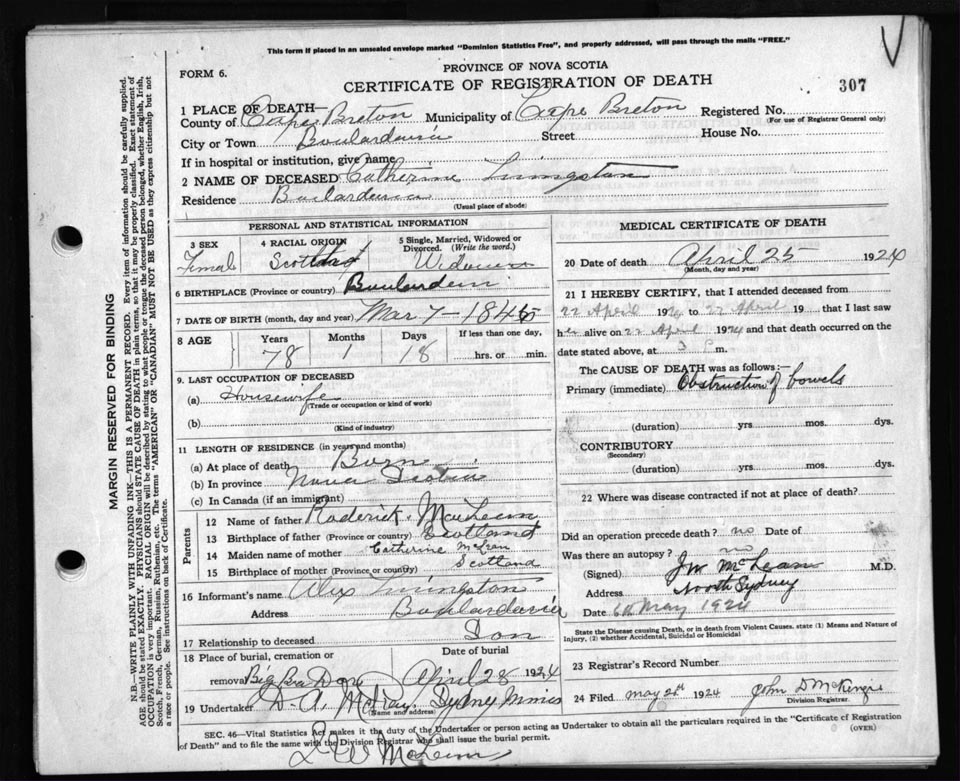 This form if placed in an unsealed envelope marked "Dominion Statistics Free", and properly addressed, will pass through the mails "FREE."
PROVINCE OF NOVA SCOTIA
FORM 6.
CERTIFICATE OF REGISTRATION OF DEATH
307
1 PLACE OF DEATH—
County of Cape Breton Municipality of Cape Breton Registered No.
(For use of Registrar General only)
City or Town Boulardarie Street House No.
If in hospital or institution, give name
2 NAME OF DECEASED Catherine Livingston
Residence Boulardarie
(Usual place of abode)
PERSONAL AND STATISTICAL INFORMATION
3 SEX Female
4 RACIAL ORIGIN
5 Single, Married, Widowed or Divorced. (Write the word.) Widow
6 BIRTHPLACE (Province or country) Boulardarie
7 DATE OF BIRTH (month, day and year) Mar 7 - 1845
8 AGE Years 78 Months 1 Days 18 If less than one day, hrs. or min.
9. LAST OCCUPATION OF DECEASED
(a) Housewife
(Trade or occupation or kind of work)
(b)
(Kind of industry)
11 LENGTH OF RESIDENCE (in years and months)
(a) At place of death Born
(b) In province Nova Scotia
(c) In Canada (if an immigrant)
Parents
12 Name of father Roderick McLean
13 Birthplace of father (Province or country) Scotland
14 Maiden name of mother Catherine McLean
15 Birthplace of mother (Province or country) Scotland
16 Informant's name Alex Livingston
Address Boulardarie
17 Relationship to deceased Son
18 Place of burial, cremation or removal Big Bras Dor Date of burial April 28 1924
19 Undertaker D. A. McKay, Sydney Mines
(Name and address)
MEDICAL CERTIFICATE OF DEATH
20 Date of death April 25 1924
(Month, day and year)
21 I HEREBY CERTIFY, that I attended deceased from
22 April 1924 to 22 April 19 that I last saw
her alive on 22 April 1924 and that death occurred on the
date stated above, at m.
The CAUSE OF DEATH was as follows:—
Primary (immediate) Obstruction of bowels
(duration) yrs. mos. dys.
CONTRIBUTORY
(Secondary)
(duration) yrs. mos. dys.
22 Where was disease contracted if not at place of death?
Did an operation precede death? no Date of
Was there an autopsy? no
(Signed) J W McLean M.D.
Address North Sydney
Date 6th May 1924
State the Disease causing Death, or in death from Violent Causes, state (1) Means and Nature of Injury, (2) whether Accidental, Suicidal or Homicidal
23 Registrar's Record Number
24 Filed May 1924 John D McKenzie
Division Registrar.
SEC. 46—Vital Statistics Act makes it the duty of the Undertaker or person acting as Undertaker to obtain all the particulars required in the "Certificate of Registration of Death" and to file the same with the Division Registrar who shall issue the burial permit.
(OVER)
McLean
MARGIN RESERVED FOR BINDING
N.B.—WRITE PLAINLY WITH UNFADING INK—THIS IS A PERMANENT RECORD. Every item of information should be carefully supplied.
AGE should be stated EXACTLY. PHYSICIANS should STATE CAUSE OF DEATH in plain terms, so that it may be properly classified. Exact statement of
OCCUPATION is very important. RACIAL ORIGIN will be described by stating to what people or tongue the deceased person belonged, whether English, Irish,
Scotch, French, German, Russian, Ruthenian, etc. The terms "AMERICAN" or "CANADIAN" MUST NOT BE USED as they express citizenship but not
a race or people. See instructions on back of Certificate.